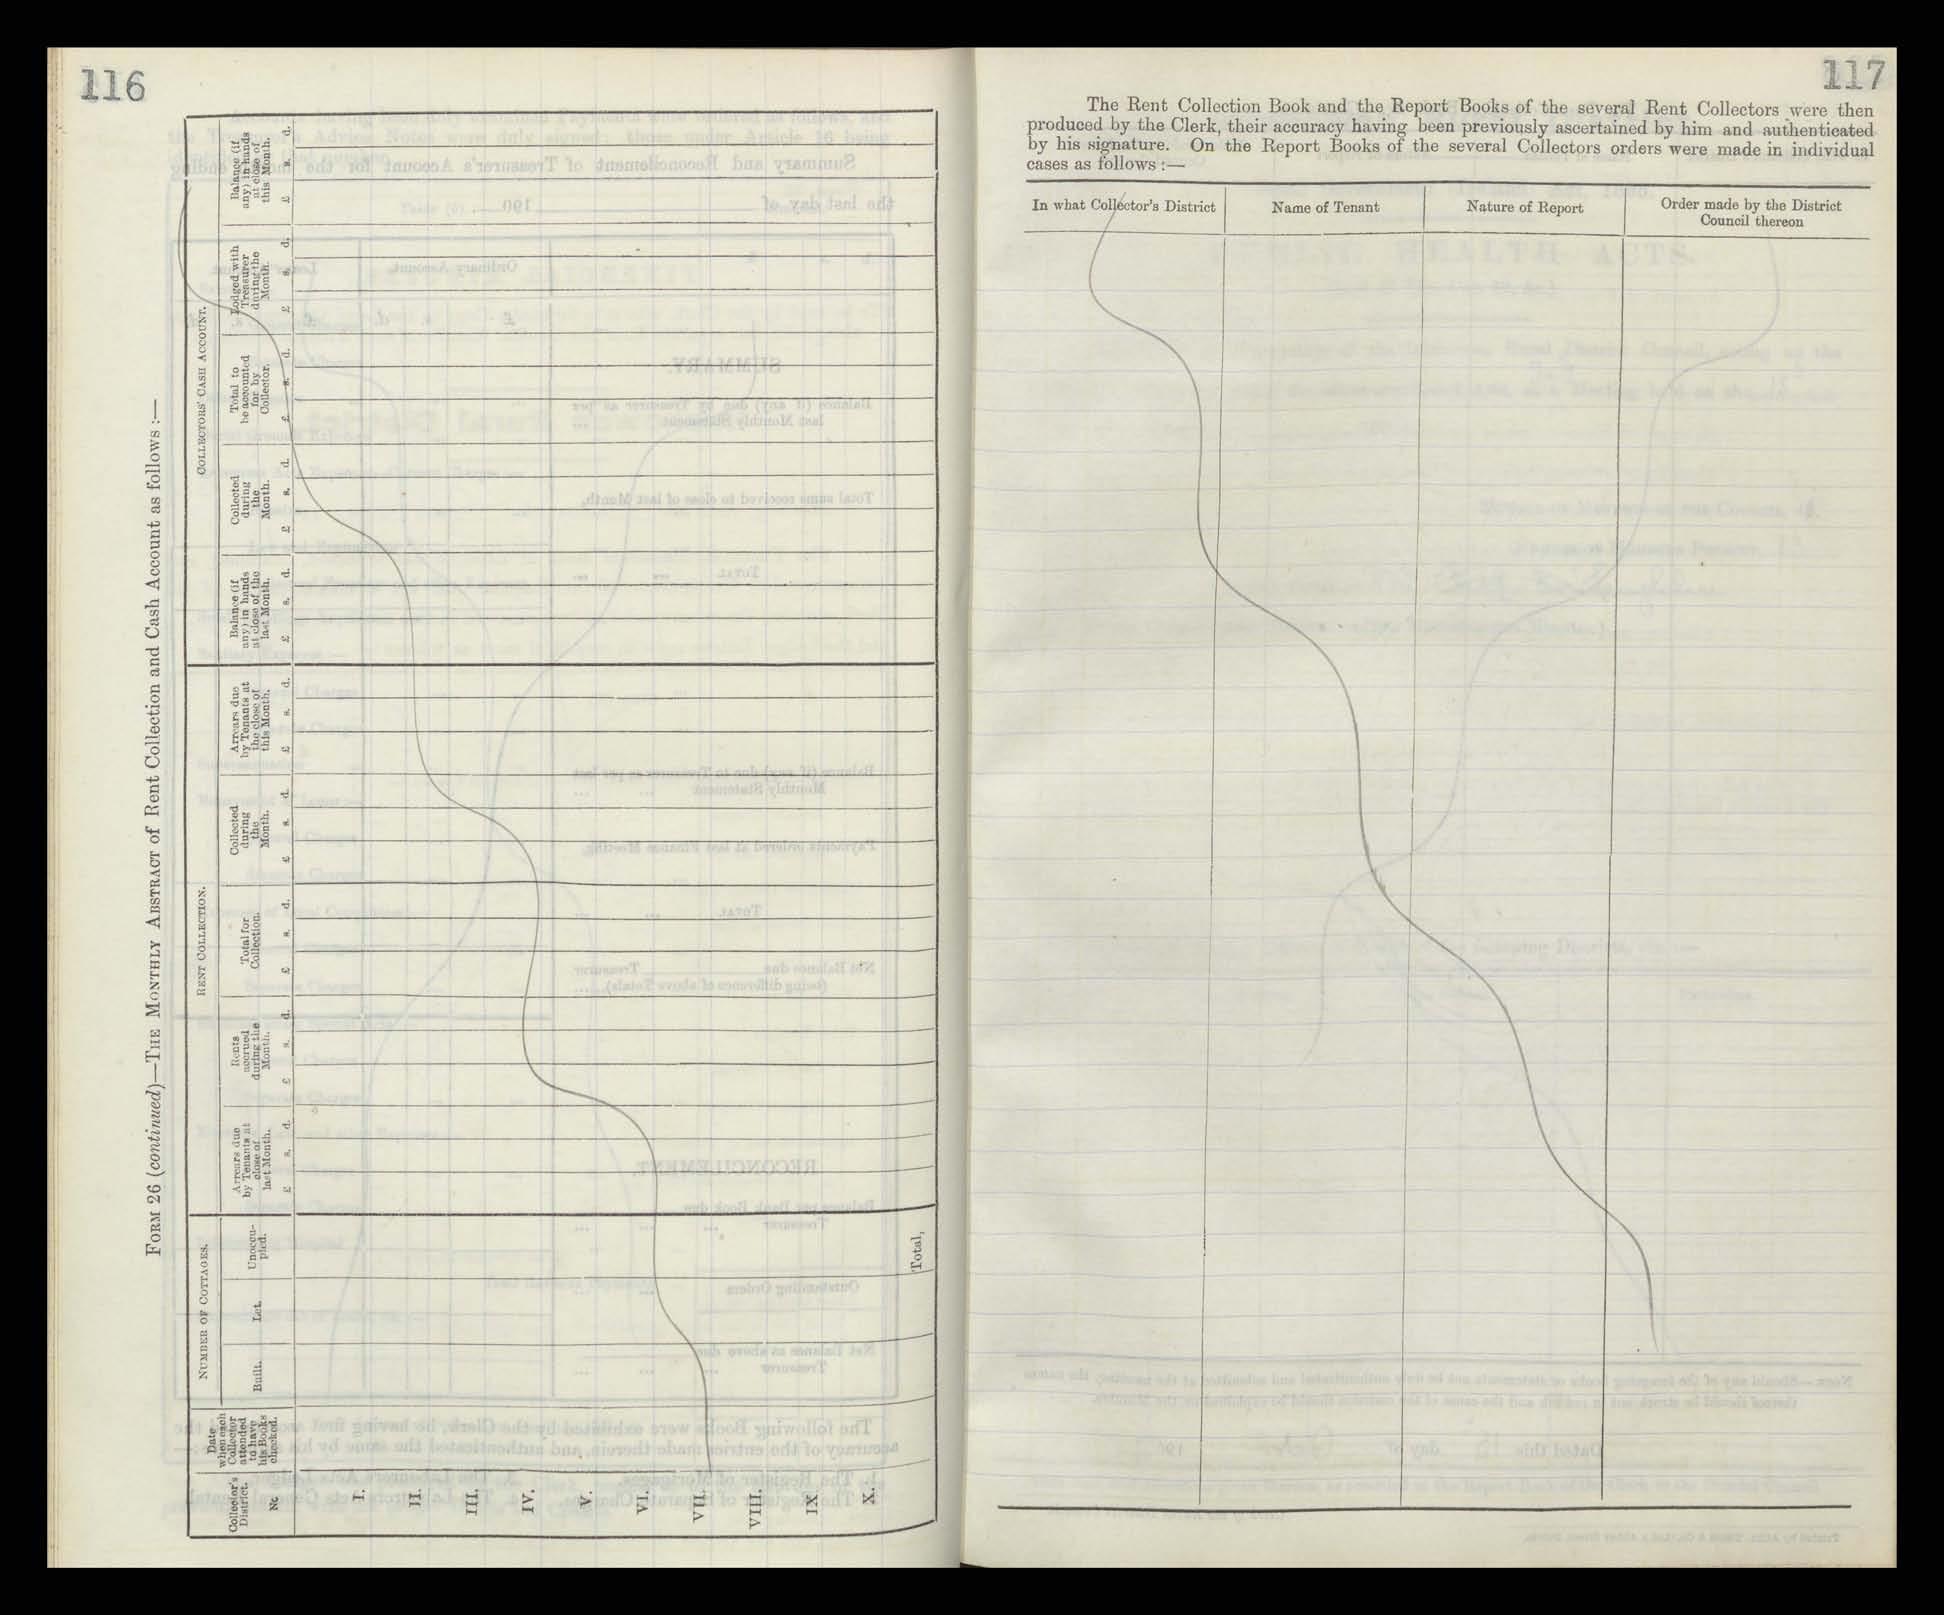 116
FORM 26 (continued)—THE MONTHLY ABSTRACT of Rent Collection and Cash Account as follows :—
Collector's
District.
No.
Date
when each
Collector
attended
to have
his Books
checked.
NUMBER OF COTTAGES.
Built.
Let.
Unoccu-
pied.
RENT COLLECTION.
Arrears due
by Tenants at
close of
last Month.
£ s. d.
Rents
accrued
during the
Month.
£ s. d.
Total for
Collection.
£ s. d.
Collected
during
the
Month.
£ s. d.
Arrears due
by Tenants at
the close of
this Month.
£ s. d.
COLLECTORS' CASH ACCOUNT.
Balance (if
any) in hands
at close of the
last Month.
£ s. d.
Collected
during
the
Month.
£ s. d.
Total to
be accounted
for by
Collector.
£ s. d.
Lodged with
Treasurer
during the
Month.
£ s. d.
Balance (if
any) in hands
at close of
this Month.
£ s. d.
I.
II.
III.
IV.
V.
VI.
VII.
VIII.
IX.
X.
Total,
117
The Rent Collection Book and the Report Books of the several Rent Collectors were then
produced by the Clerk, their accuracy having been previously ascertained by him and authenticated
by his signature. On the Report Books of the several Collectors orders were made in individual
cases as follows :—
In what Collector's District
Name of Tenant
Nature of Report
Order made by the District
Council thereon